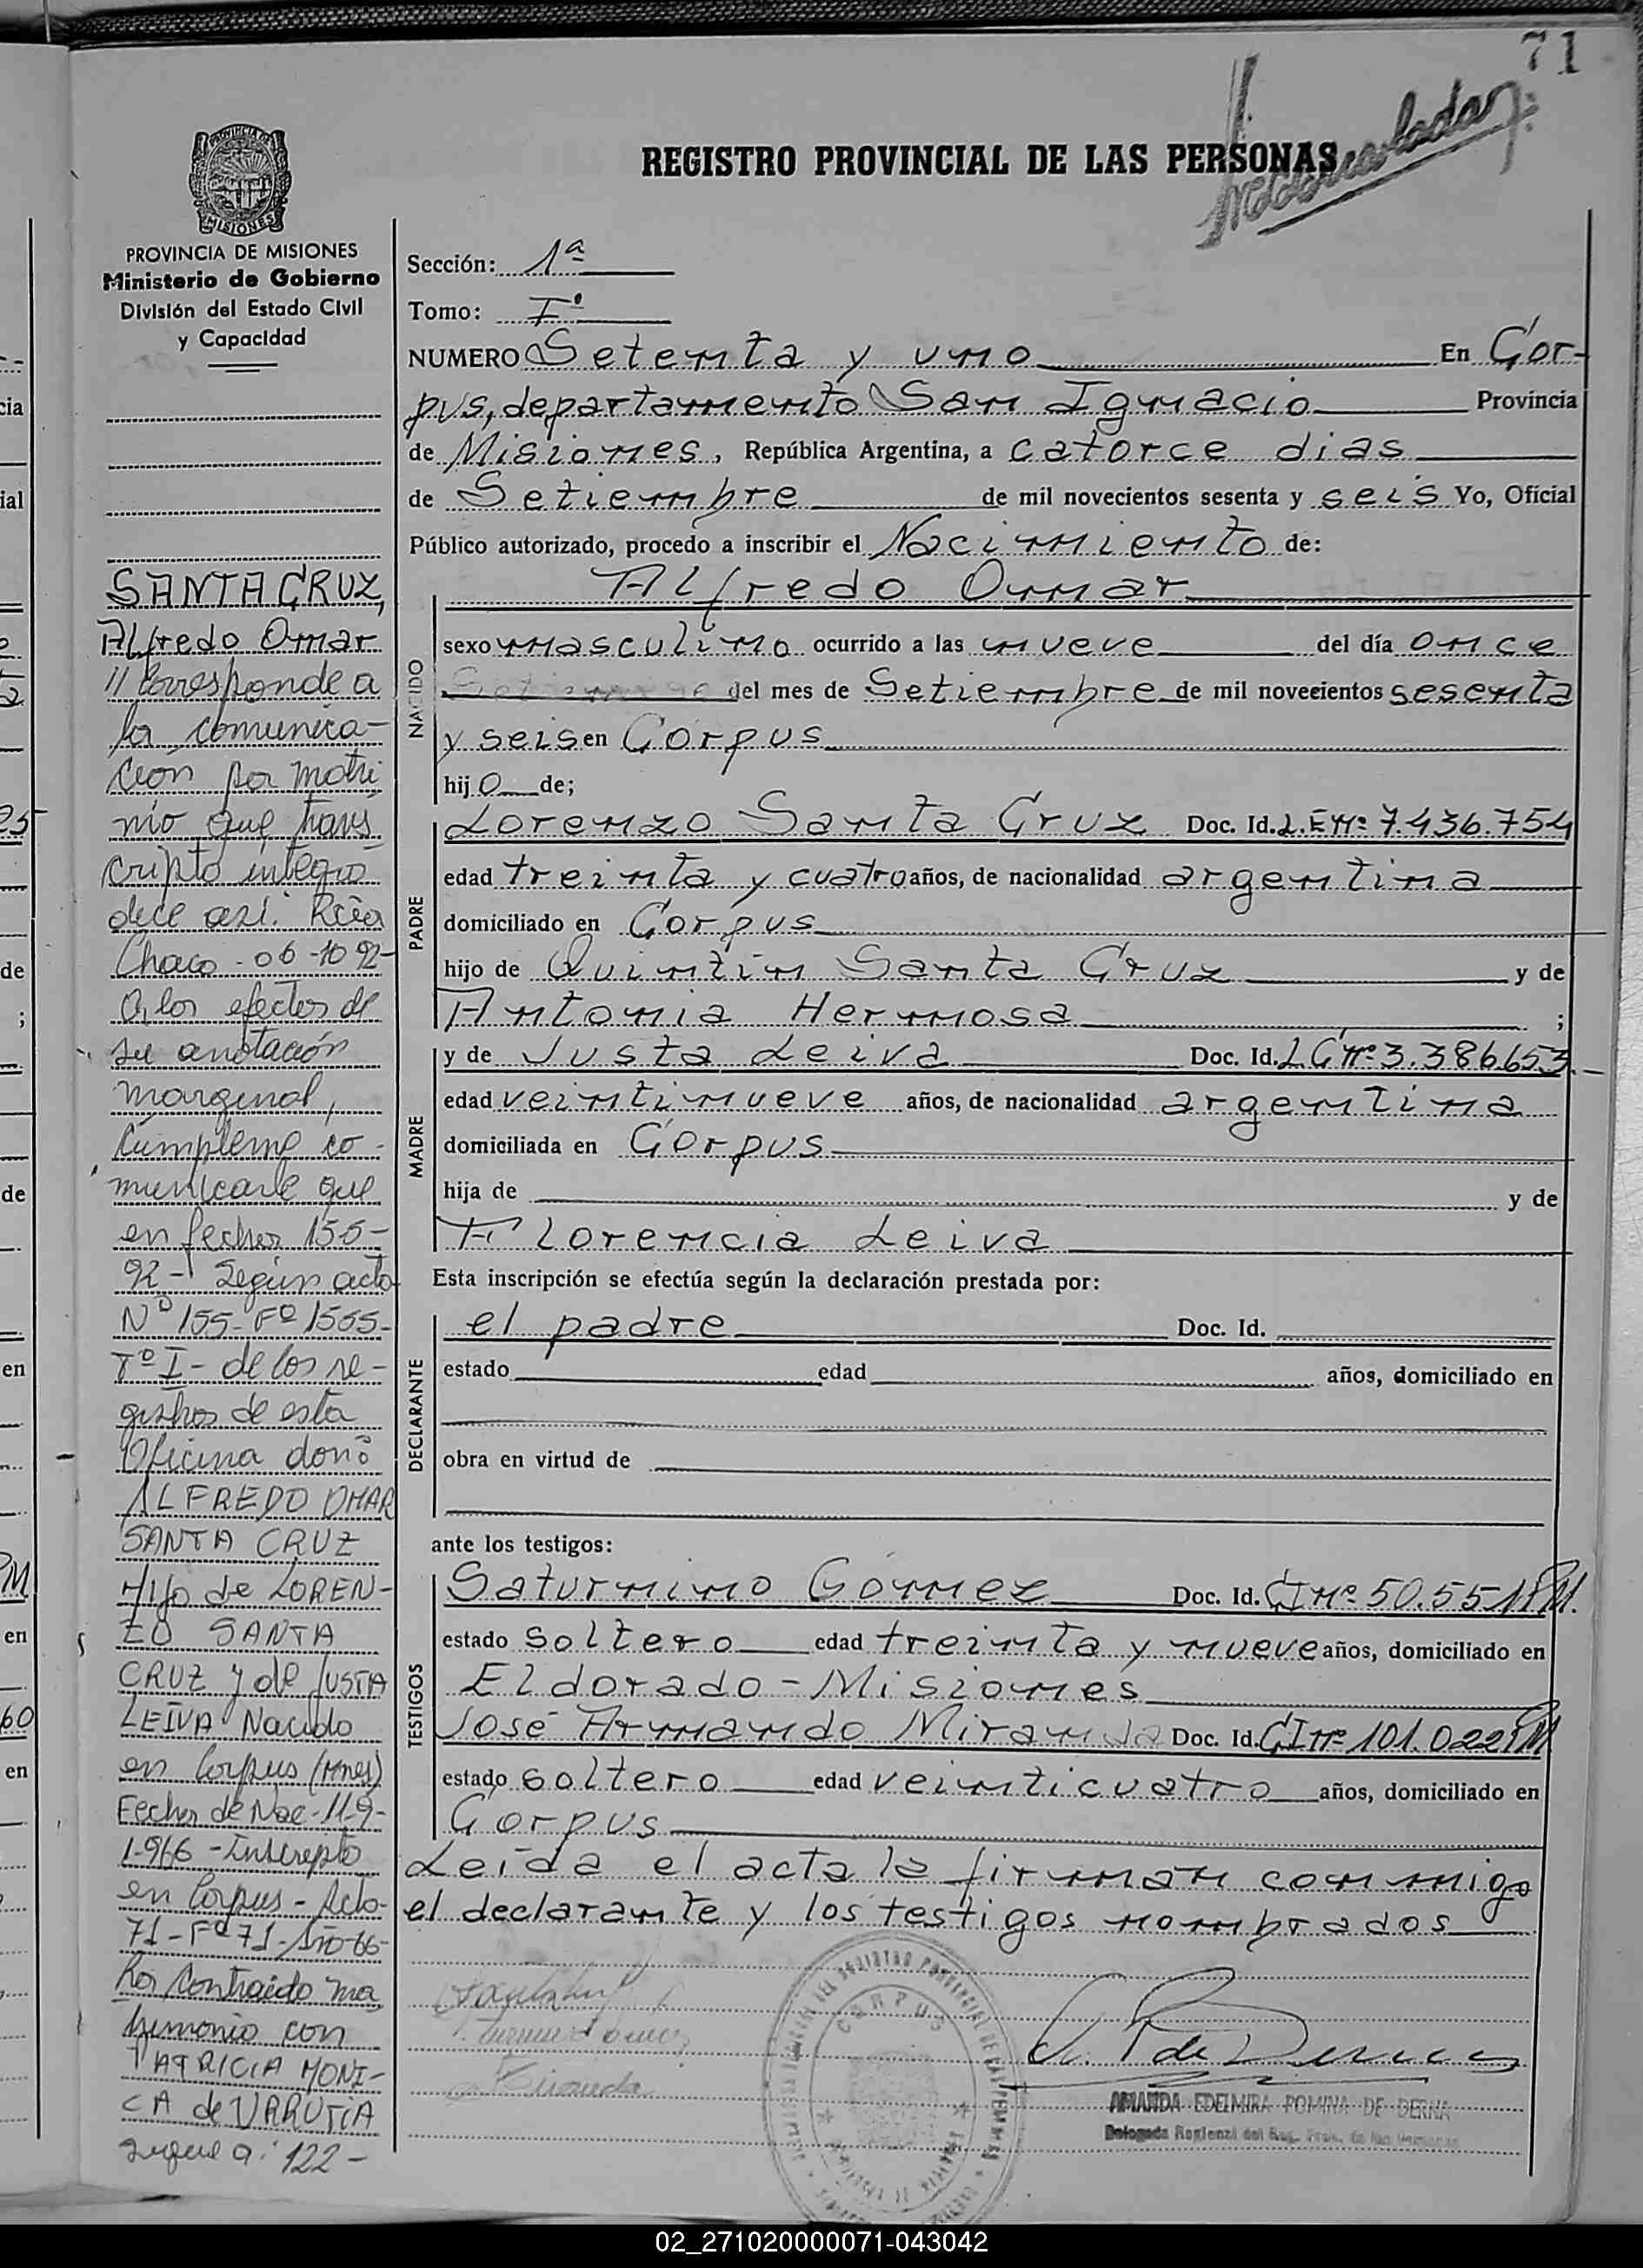 71
REGISTRO PROVINCIAL DE LAS PERSONAS
PROVINCIA DE MISIONES
Ministerio de Gobierno
División del Estado Civil
y Capacidad
SANTA CRUZ,
Alfredo Omar
// Corresponde a
la comunica-
ción por matri
nio que trans
cripto integro
dice asi: Rcia
Chaco - 06-10 92-
A los efectos de
su anotación
marginal,
Cumpleme co-
municarle que
en fecha 15-5-
92- Según acta
Nº 155- Fº 1555-
Tº I - de los re-
gistros de esta
Oficina don:
ALFREDO OMAR
SANTA CRUZ
Hijo de LOREN-
ZO SANTA
CRUZ y de JUSTA
LEIVA Nacido
en Corpus (Mnes)
Fecha de Nac - 11-9-
1.966 - Inscripto
en Corpus - Acta-
71 - Fº 71 - Año 66-
ha contraido ma
trimonio con
PATRICIA MONI-
CA de URRUTIA
sigue a: 122 -
Sección: 1ª
Tomo: Iº
NUMERO Setenta y uno En Cor-
pus, departamento San Ignacio Provincia
de Misiones, República Argentina, a catorce dias
de Setiembre de mil novecientos sesenta y seis Yo, Oficial
Público autorizado, procedo a inscribir el Nacimiento de:
Alfredo Omar
NACIDO
sexo masculino ocurrido a las nueve del día once
del mes de Setiembre de mil novecientos sesenta
y seis en Corpus
hijo de;
PADRE
Lorenzo Santa Cruz Doc. Id. L.E Nº 7.436.754
edad treinta y cuatro años, de nacionalidad argentina
domiciliado en Corpus
hijo de Quintin Santa Cruz y de
Antonia Hermosa ;
MADRE
y de Justa Leiva Doc. Id. L C Nº 3.386.653
edad veintinueve años, de nacionalidad argentina
domiciliada en Corpus
hija de y de
Florencia Leiva
Esta inscripción se efectúa según la declaración prestada por:
DECLARANTE
el padre Doc. Id.
estado edad años, domiciliado en
obra en virtud de
ante los testigos:
TESTIGOS
Saturnino Gómez Doc. Id. CI Nº 50.551 PM.
estado soltero edad treinta y nueve años, domiciliado en
Eldorado - Misiones
José Armando Miranda Doc. Id. CI Nº 101.022 PM
estado soltero edad veinticuatro años, domiciliado en
Corpus
Leída el acta la firman conmigo
el declarante y los testigos nombrados
CORPUS
Miranda
AMANDA EDELMIRA POMINA DE DERNA
Delegada Regional del Reg. Prov. de las Personas
02_271020000071-043042